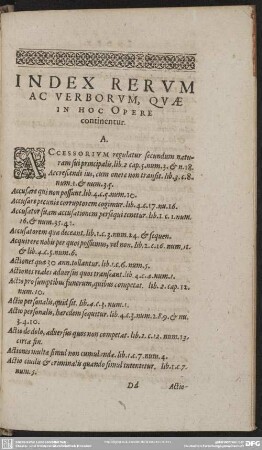 INDEX RERVM
AC VERBORVM, QVÆ
IN HOC OPERE
continentur.
A.
ACCESSORIVM regulatur secundum natu-
ram sui principalis. lib.2 cap.3.num.3. & n.18.
Accrescendi ius, cum onere non transit. lib.4.c.8.
num.1. & num.35.
Accusare qui non possunt. lib.4.c.4.num.10.
Accusare pecuniis corruptorem cogimur. lib.4.c.17.nu.16.
Accusator suam accusationem persequi tenetur. lib.1.c.1.num.
16. & num.35.41.
Accusatorem quæ deceant. lib.1.c.3.num.24. & sequen.
Acquirere nobis per quos possumus, vel non. lib.2.c.16.num.11.
& lib.4.c.5.num.6.
Actiones quæ 30 ann.tollantur. lib.1.c.6.num.5.
Actiones reales aduersus quos transeant. lib.4.c.2.num.1.
Actio pro sumptibus funerum, quibus competat. lib.2.cap.12.
num.10.
Actio personalis, quid sit. lib.4.c.3.num.1.
Actio personalis, hæredem sequitur. lib.4.c.3.num.2.8.9. & nu.
3.4.10.
Actio de dolo, aduersus quos non competat. lib.2.c.12.num.13.
circa fin.
Actiones multa simul non cumulandæ. lib.1.c.7.num.4.
Actio ciuilis & criminalis quando simul intentetur. lib.1.c.7.
num.5.
Dd Actio-